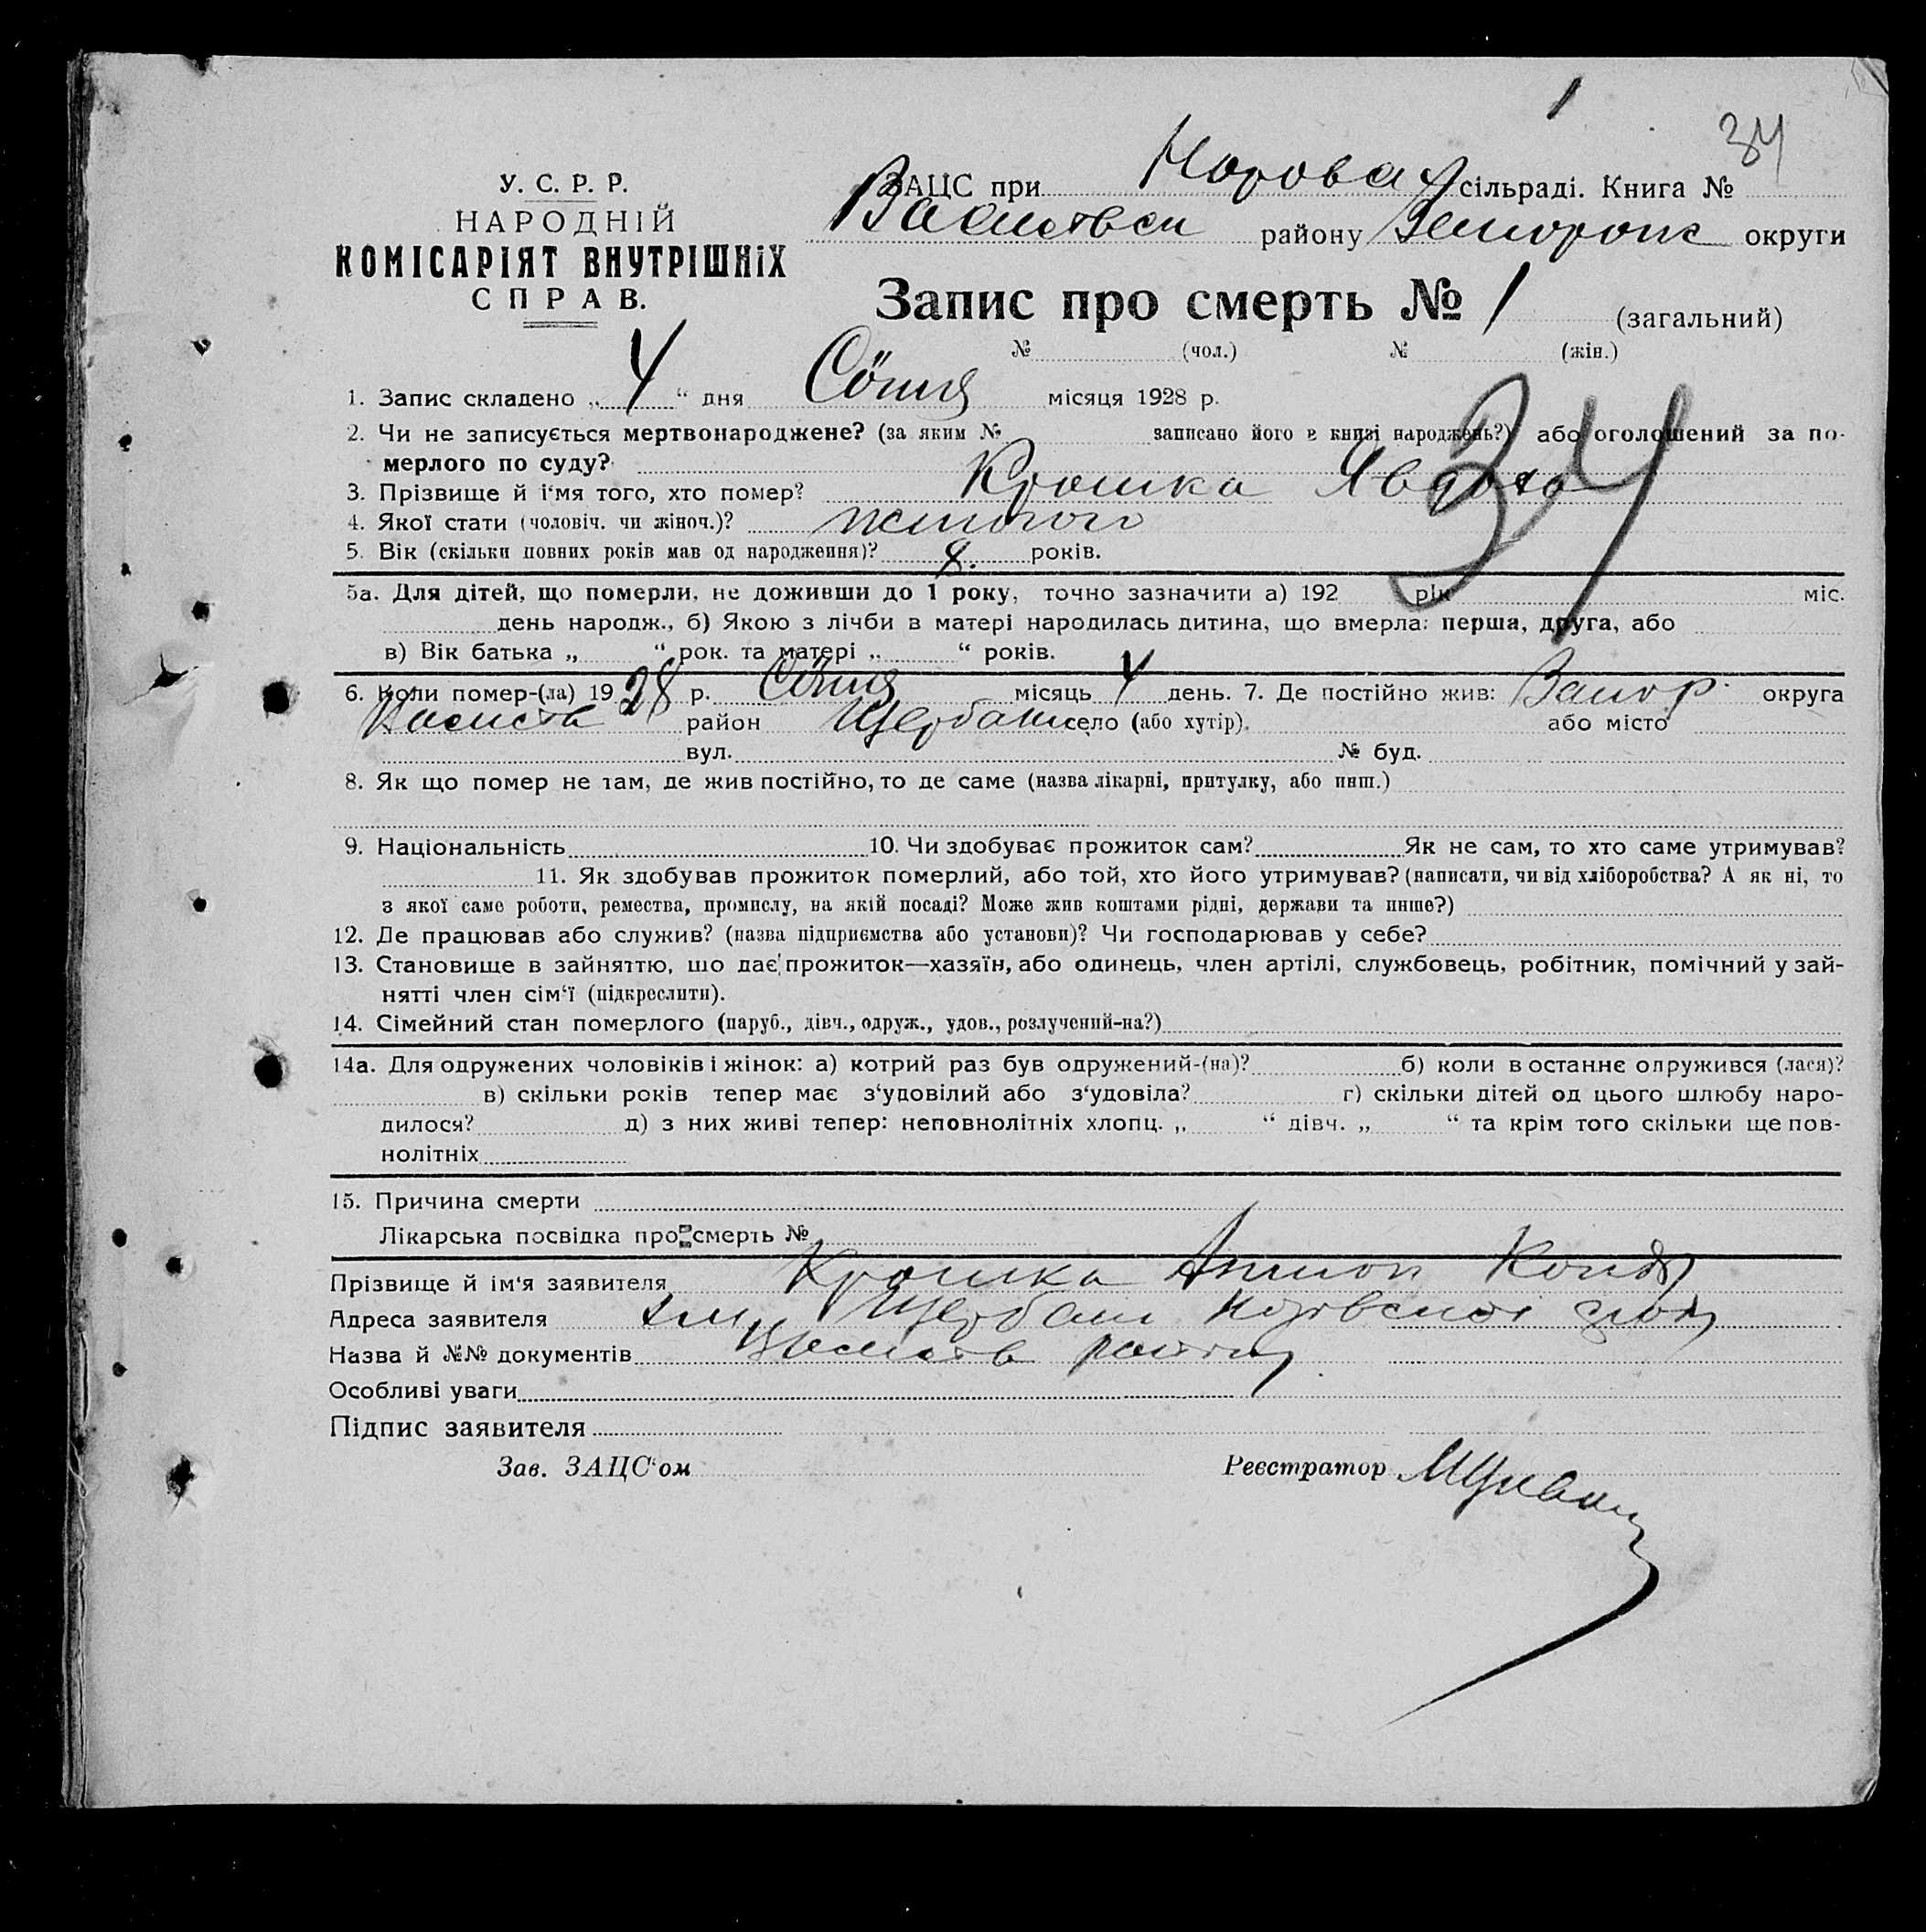 1
34
У. С. Р. Р.
НАРОДНІЙ
КОМІСАРІЯТ ВНУТРІШНІХ
СПРАВ.
ЗАЦС при сільраді. Книга №
району округи
Запис про смерть № 1 (загальний)
№ (чол.) № (жін.)
1. Запис складено „ 4 “ дня Січня місяця 1928 р.
34
2. Чи не записується мертвонароджене? (за яким № записано його в книзі народжень?) або оголошений за по-
мерлого по суду?
3. Прізвище й і‘мя того, хто помер? Крошка Явдоха
4. Якої стати (чоловіч. чи жіноч.)? жіночого
5. Вік (скільки повних років мав од народження)? 8. років.
5а. Для дітей, що померли, не доживши до 1 року, точно зазначити а) 192 рік міс.
день народж., б) Якою з лічби в матері народилась дитина, що вмерла: перша, друга, або
в) Вік батька „ “ рок. та матері „ “ років.
6. Коли помер-(ла) 1928 р. Січня місяць 4 день. 7. Де постійно жив: Запор. округа
район село (або хутір). або місто
вул. № буд.
8. Як що помер не там, де жив постійно, то де саме (назва лікарні, притулку, або инш.)
9. Національність 10. Чи здобуває прожиток сам? Як не сам, то хто саме утримував?
11. Як здобував прожиток померлий, або той, хто його утримував? (написати, чи від хліборобства? А як ні, то
з якої саме роботи, ремества, промислу, на якій посаді? Може жив коштами рідні, держави та инше?)
12. Де працював або служив? (назва підприємства або установи)? Чи господарював у себе?
13. Становище в зайняттю, що дає прожиток—хазяїн, або одинець, член артілі, службовець, робітник, помічний у зай-
нятті член сім‘ї (підкреслити).
14. Сімейний стан померлого (паруб., дівч., одруж., удов., розлучений-на?)
14а. Для одружених чоловіків і жінок: а) котрий раз був одружений-(на)? б) коли в останнє одружився (лася)?
в) скільки років тепер має з‘удовілий або з‘удовіла? г) скільки дітей од цього шлюбу наро-
дилося? д) з них живі тепер: неповнолітніх хлопц. „ “ дівч. „ “ та крім того скільки ще пов-
нолітніх
15. Причина смерти
Лікарська посвідка про смерть №
Прізвище й ім‘я заявителя Крошка Антон Конд
Адреса заявителя
Назва й №№ документів
Особливі уваги
Підпис заявителя
Зав. ЗАЦС‘ом Реєстратор